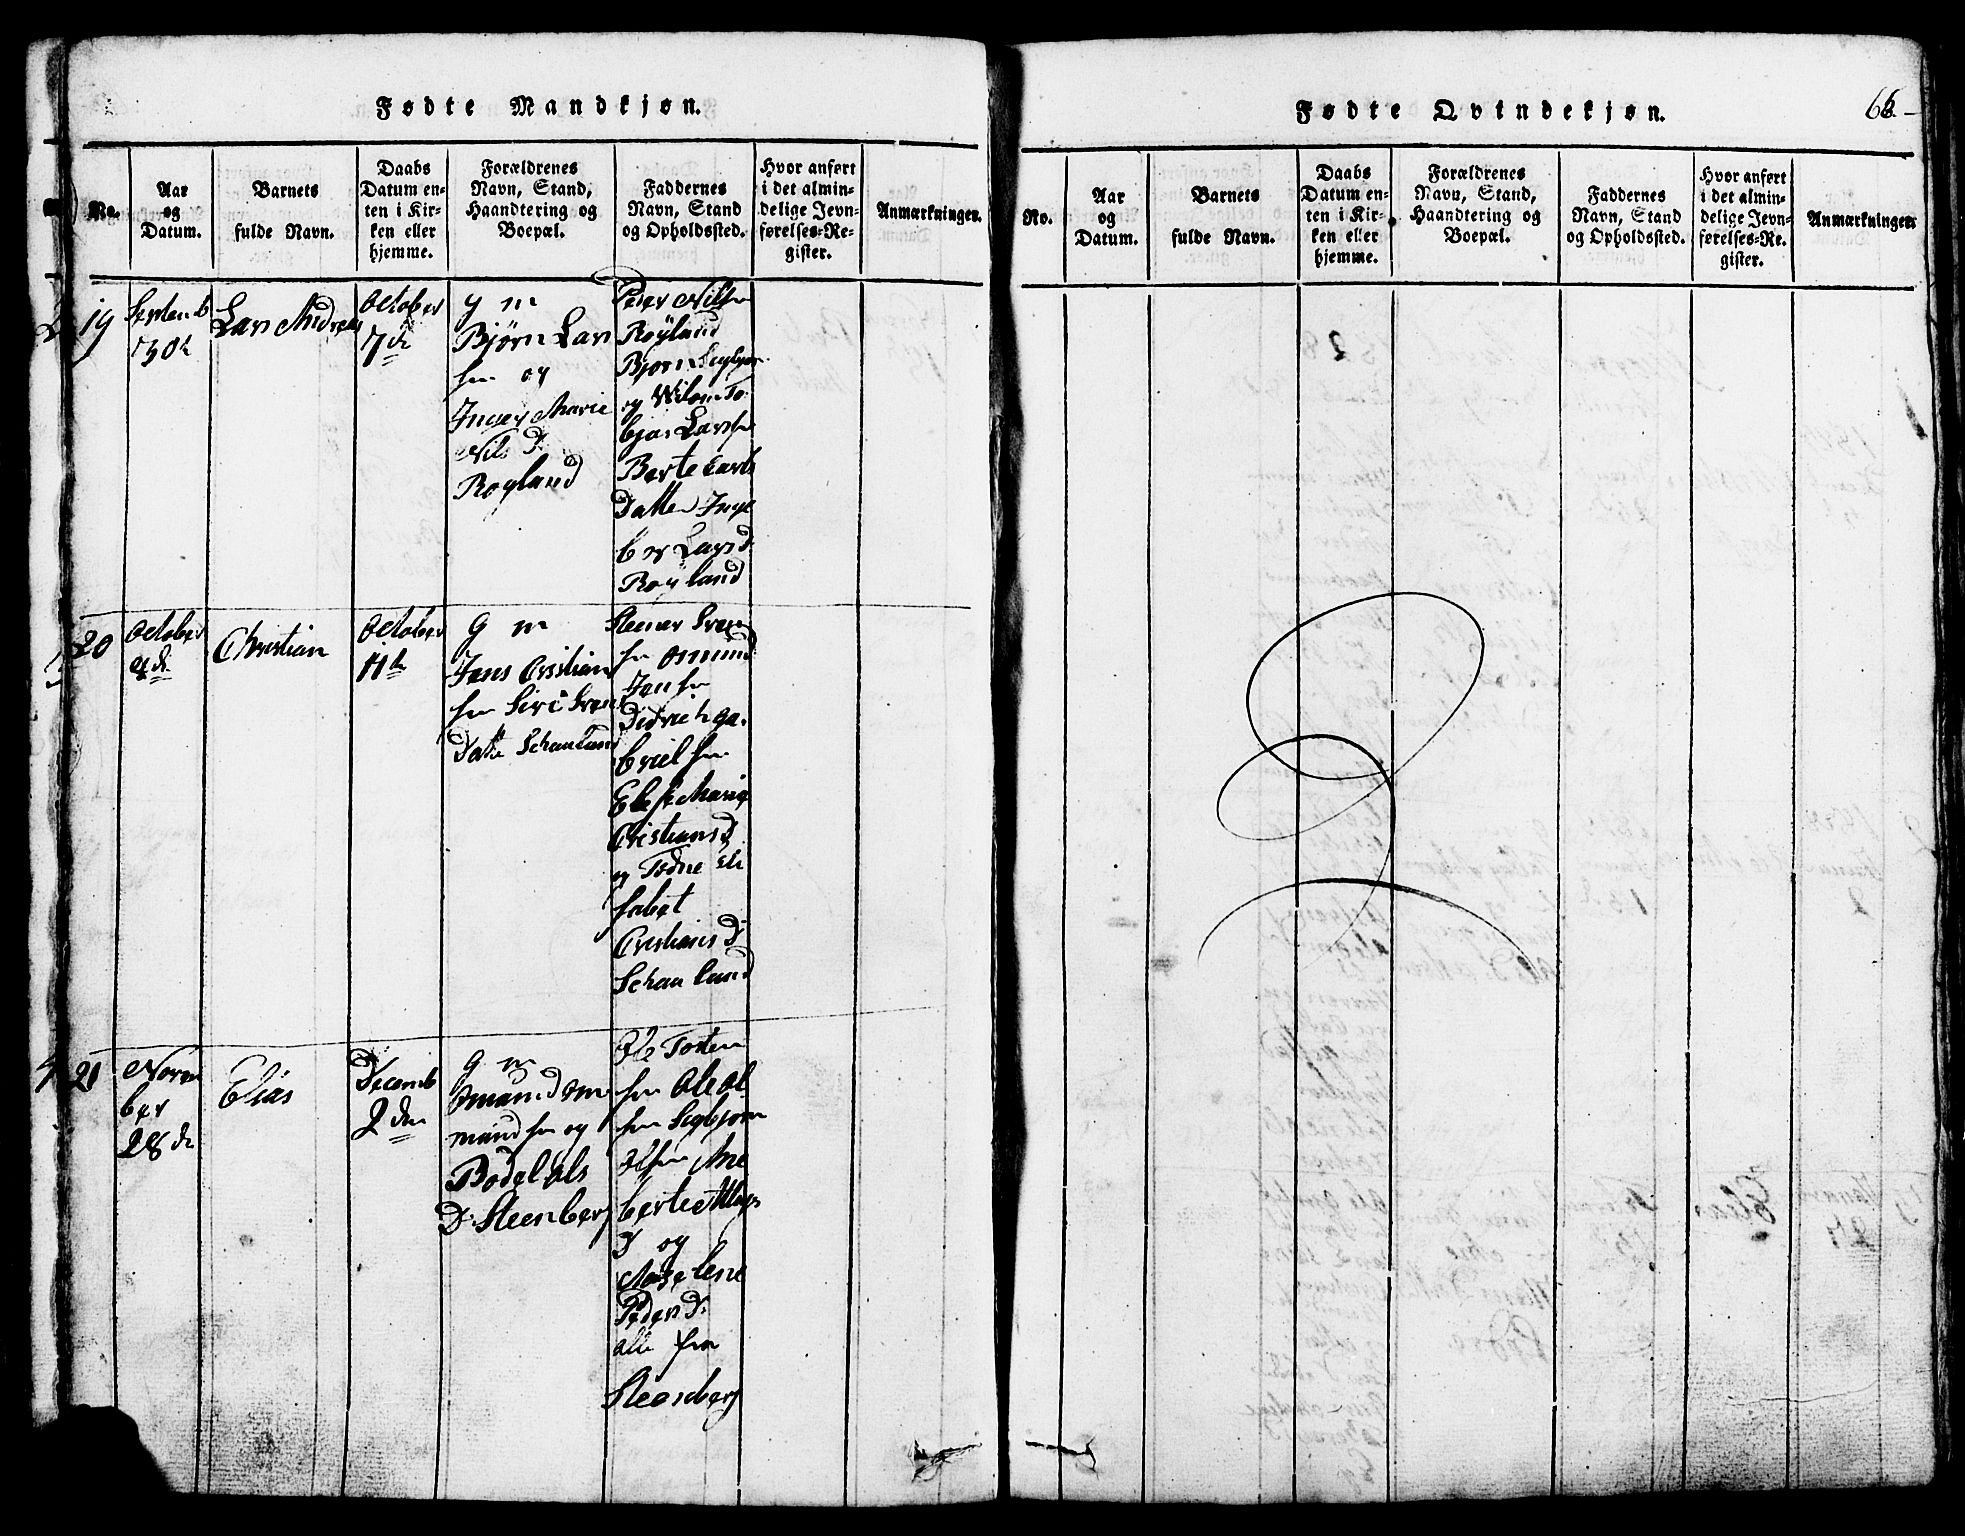 Fødte Mandkjøn.
No.
Aar
og
Datum.
Barnets
fulde Navn.
Daabs
Datum en-
ten i Kir-
ken eller
hjemme.
Forældrenes
Navn, Stand,
Haandtering og
Boepæl.
Faddernes
Navn, Stand
og Opholdssted.
Hvor anført
i det almin-
delige Jevn-
førelses-Re-
gister.
Anmærkninger.
19
Septemb
30
Lars Andreas
October
7 de
g m
Bjørn Lars
sen og
Inger Marie
Nils D.
Røyland
Peder Nilsen
Røyland
og
bjør Larsen
Berte Carls
Datter Inge
ber Lars d
Røyland
20
October
4 de
Christian
October
11
g m
Jens Cristian
sen Siri Svens
Datter Schauland
Steener Sven
sen Omund
Jansen
Didrich Ga-
brielsen
Else Marie
Cristians D
og Todne Eli
sabet
Cristians D
Schauland
21
Novem
ber
28 de
Elias
Decemb
2 den
g m
Omund Om
mundsen og
Bodel Ols
D. Steenberg
Ole Tosten
sen Ole Ol
sen Segbjorn
Olsen Ane
berte
D og
lene
Peders D.
alle fra
Steenberg
Fødte Qvindekjøn.
66
No.
Aar
og
Datum.
Barnets
fulde Navn.
Daabs
Datum en-
ten i Kir-
ken eller
hjemme.
Forældrenes
Navn, Stand,
Haandtering og
Boepæl.
Faddernes
Navn, Stand
og Opholdssted.
Hvor anført
i det almin-
delige Jevn-
førelses-Re-
gister.
Anmærkninger.